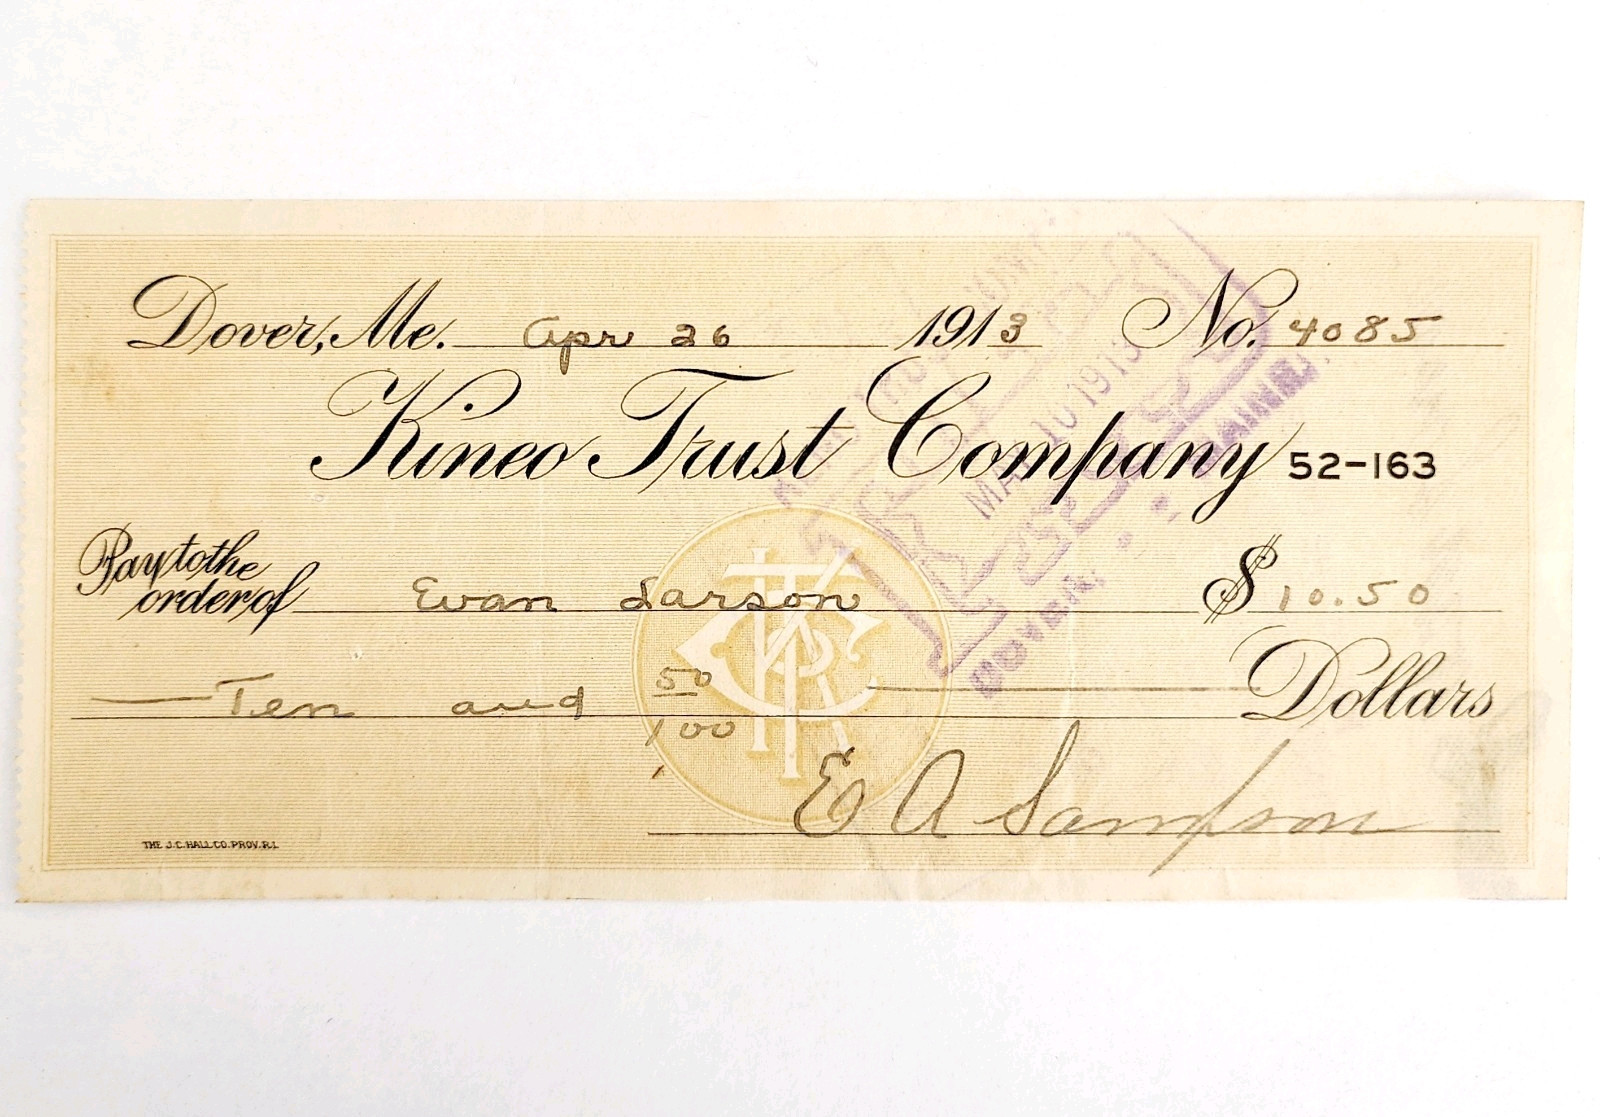 Dover, Me. Apr 26 1913 No. 4085
Kineo Trust Company 52-163
Pay to the order of Evan Larson $10.50
Ten and 50/100 Dollars
E A Sampson
THE J.C. HALL CO. PROV. R.I.
KTC
PAID
MAY 10 1913
DOVER, MAINE